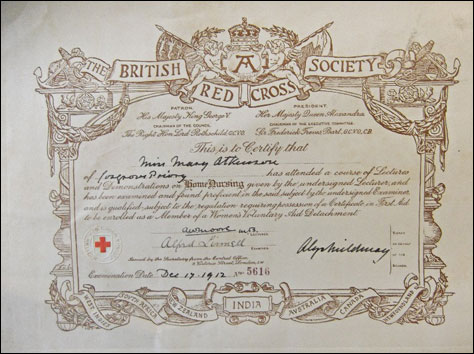 THE BRITISH RED CROSS SOCIETY
PATRON.
His Majesty King George V.
CHAIRMAN OF THE COUNCIL
The Right Hon. Lord Rothschild. G.C.V.O.
PRESIDENT
Her Majesty Queen Alexandra
CHAIRMAN OF THE EXECUTIVE COMMITTEE.
Sir Frederick Treves Bart. G.C.V.O, C.B.
This is to Certify that
Miss Mary Atkinson
of Priory has attended a course of Lectures
and Demonstrations on Home Nursing given by the undersigned Lecturer, and
has been examined and found proficient in the said subject by the undersigned Examiner,
and is qualified, subject to the regulation requiring possession of a Certificate in First Aid
to be enrolled as a Member of a Womens Voluntary Aid Detachment.
M.B. LECTURER
Alfred EXAMINER
Issued by the Secretary from the Central Office,
Victoria Street, London, S.W.
Examination Date Dec 17. 1912 No 5616
WEST INDIES
SOUTH AFRICA
NEW ZEALAND
INDIA
AUSTRALIA
CANADA
NEWFOUNDLAND